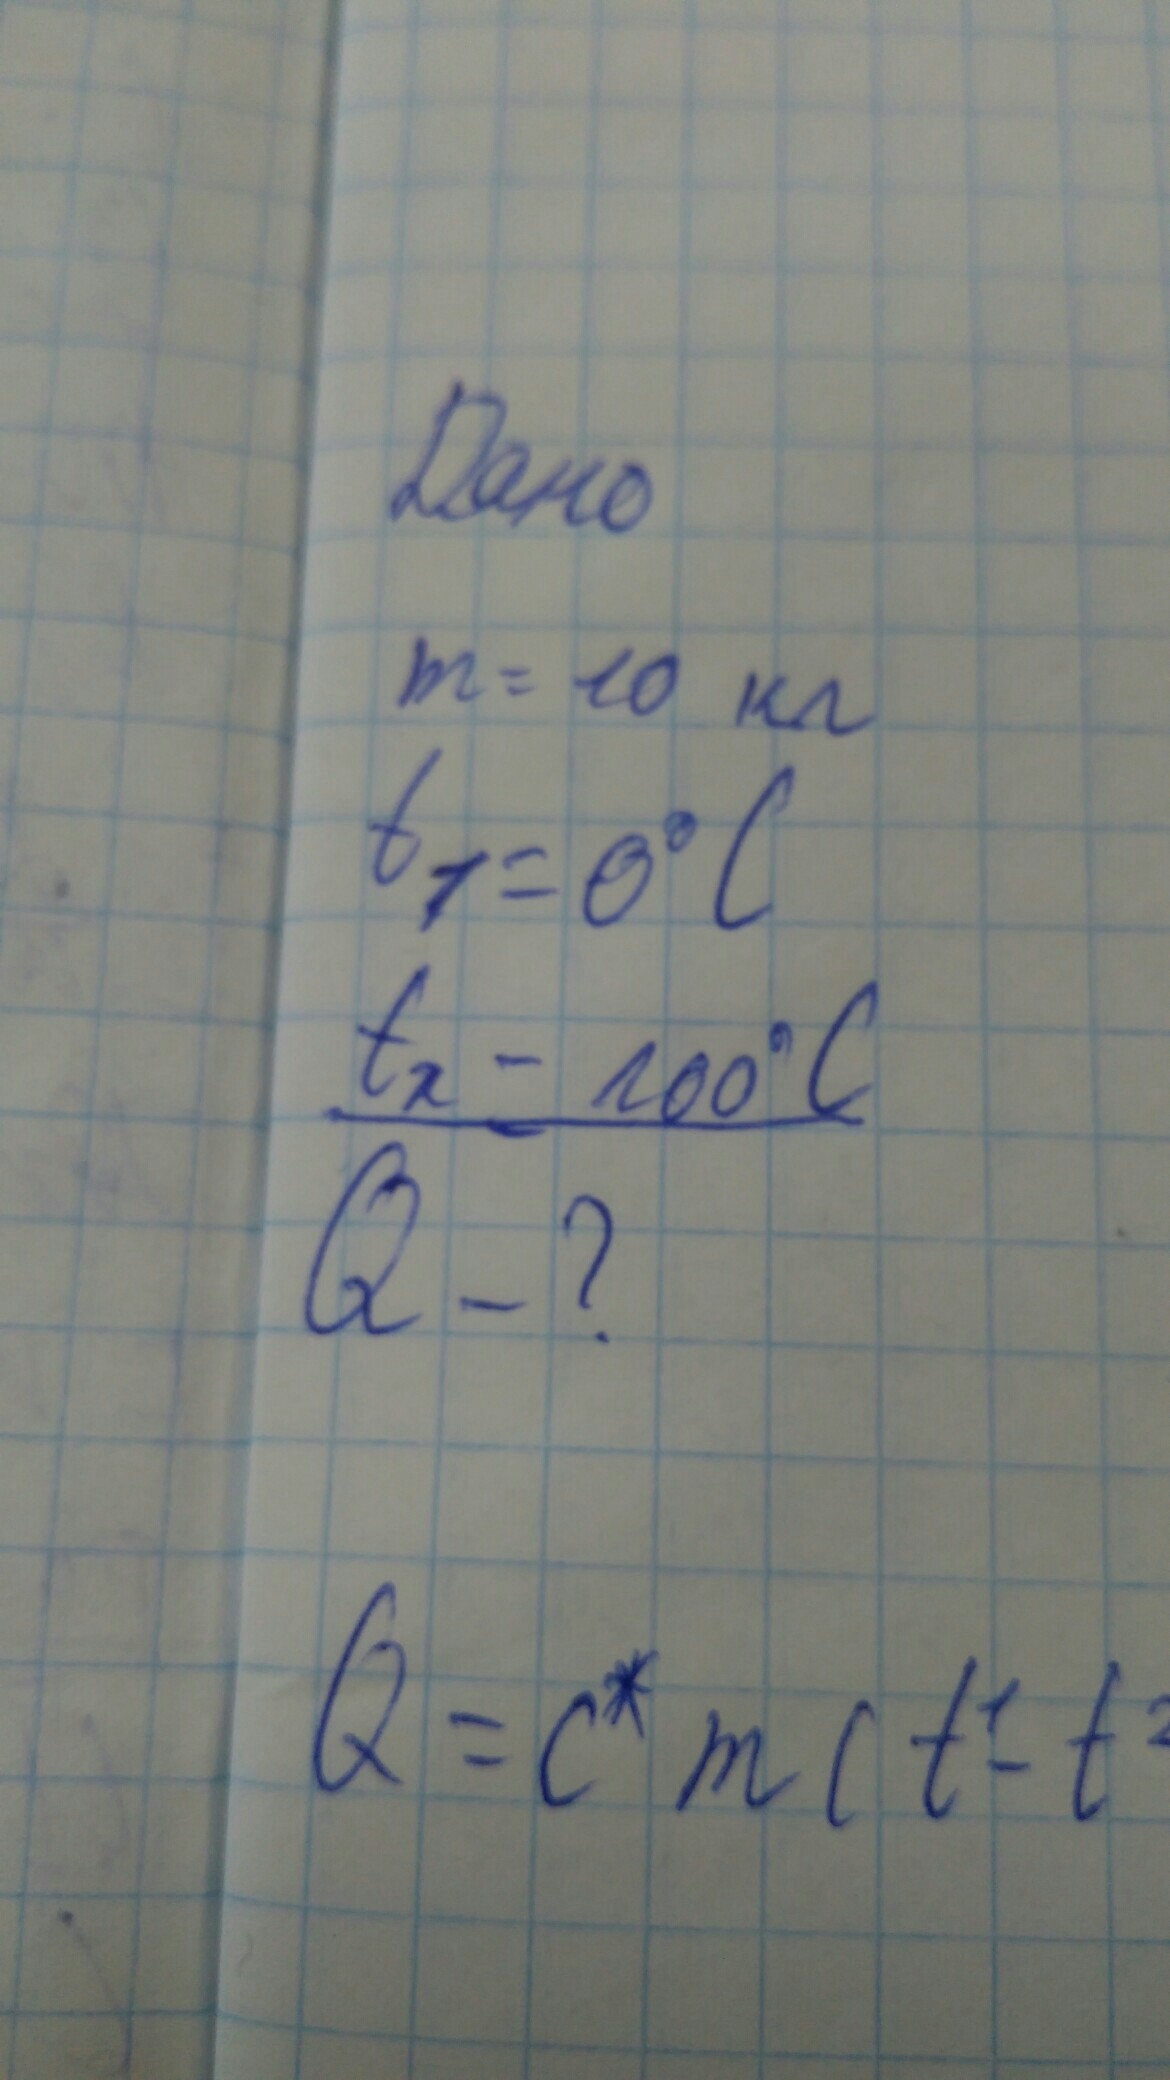 Дано
m = 10 кг
t₁ = 0°C
t₂ - 100°C
Q - ?
Q = c * m ( t¹ - t²